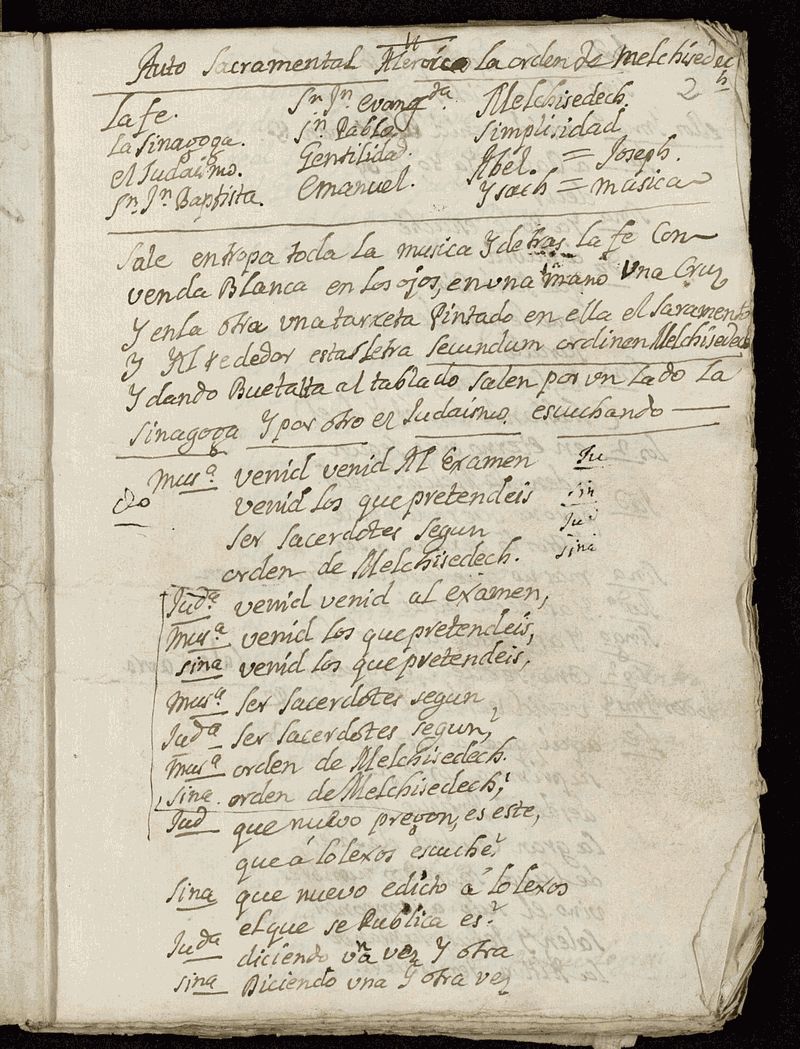 Auto Sacramental Aleroico La orden de Melchisedech
2
La fe. Sn Jn evangda Melchisedech.
La Sinagoga. Sn Pablo Simplisidad
el Judaismo. Gentilidad Abel. = Joseph.
Sn Jn Baptista. Emanuel. Ysach = musica
Sale entropa toda La musica Y detras La fe Con
venda Blanca en los ojos, en una mano Una Cruz
Y enla otra una tarxeta Pintado en ella el Sarament
Y Al rededor estas Letra Secundum ordinen Melchisedech
Y dando Buelta al tablado Salen por un Lado La
Sinagoga Y por otro el Judaismo. escuchando
Musa venid venid Al Examen Ju
venid Los que pretendeis Sin
Ser Sacerdotes Segun Jud
orden de Melchisedech. Sina
Juda venid venid al examen,
Musa venid los que pretendeis,
Sina venid los que pretendeis,
Musa Ser Sacerdotes Segun
Juda Ser Sacerdotes Segun,
Musa orden de Melchisedech.
Sina. orden de Melchisedech,
Jud que nuevo pregon, es este,
que á lo lexos escuche?
Sina que nuevo edicto á lo lexos
el que se Publica es?
Juda diciendo una vez Y otra
Sina Diciendo una Y otra vez